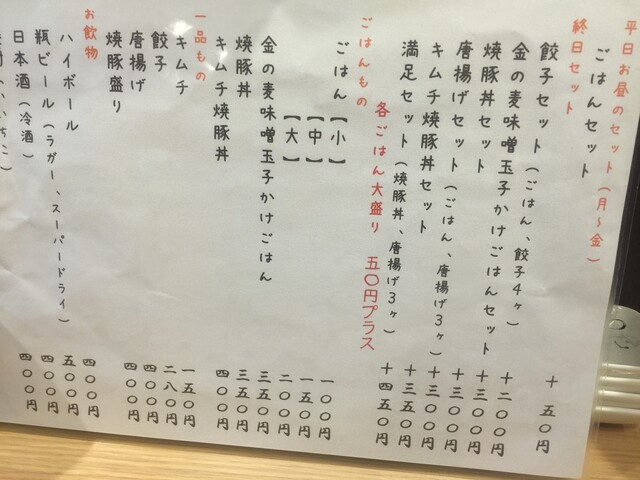 平日お昼のセット(月〜金)
ごはんセット +五〇円
終日セット
餃子セット(ごはん、餃子4ヶ) +二〇〇円
金の麦味噌玉子かけごはんセット +三〇〇円
焼豚丼セット +三〇〇円
唐揚げセット(ごはん、唐揚げ3ヶ) +三〇〇円
キムチ焼豚丼セット +三五〇円
満足セット(焼豚丼、唐揚げ3ヶ) +四五〇円
ごはんもの 各ごはん大盛り 五〇円プラス
ごはん【小】 一〇〇円
【中】 一五〇円
【大】 二〇〇円
金の麦味噌玉子かけごはん 三五〇円
焼豚丼 三五〇円
キムチ焼豚丼 四〇〇円
一品もの
キムチ 一五〇円
餃子 二八〇円
唐揚げ 四〇〇円
焼豚盛り 四〇〇円
お飲物
ハイボール 四〇〇円
瓶ビール(ラガー、スーパードライ) 五〇〇円
日本酒(冷酒) 四〇〇円
四〇〇円